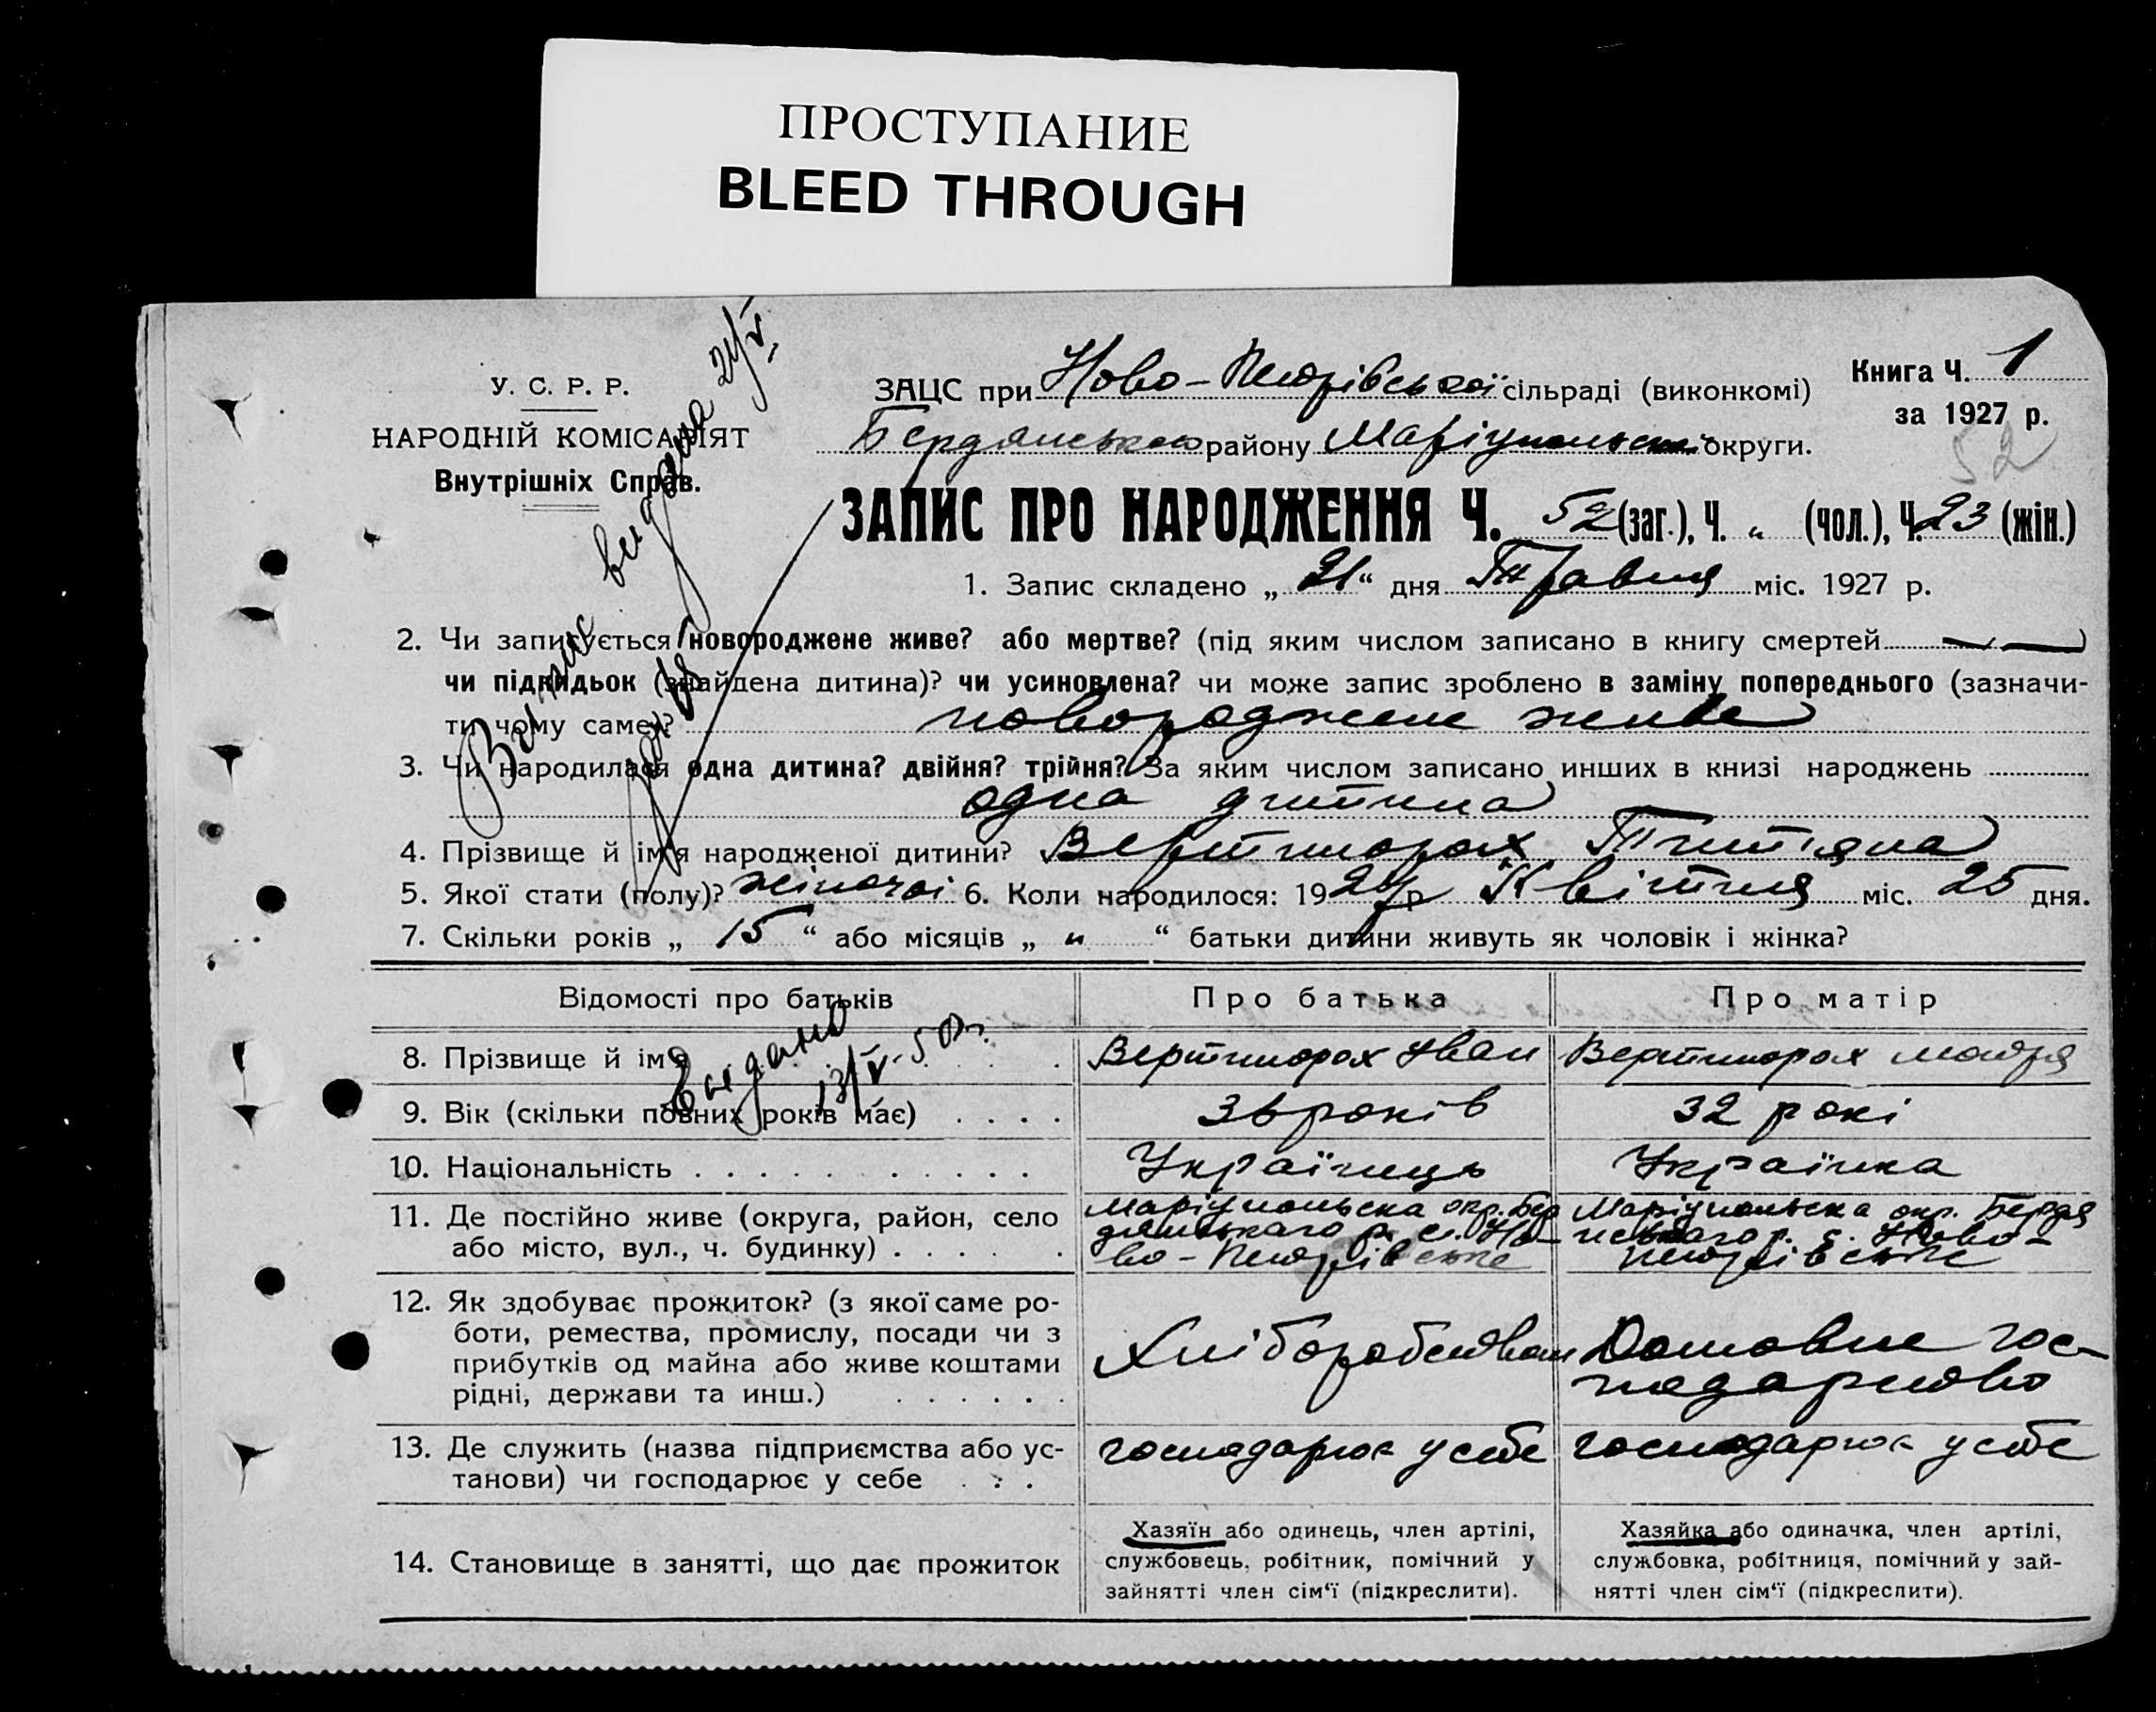 ПРОСТУПАНИЕ
BLEED THROUGH
У. С. Р. Р.
НАРОДНІЙ КОМІСАРІЯТ
Внутрішніх Справ.
Книга Ч. 1
за 1927 р.
52
ЗАЦС при Ново-Петрівської сільраді (виконкомі)
Бердянського району Маріупольської округи.
ЗАПИС ПРО НАРОДЖЕННЯ Ч. 52 (заг.), Ч. " (чол.), Ч. 23 (жін.)
1. Запис складено „ 21 “ дня Травня міс. 1927 р.
2. Чи записується новороджене живе? або мертве? (під яким числом записано в книгу смертей — )
чи підкидьок (знайдена дитина)? чи усиновлена? чи може запис зроблено в заміну попереднього (зазначи-
ти чому саме)? новороджене живе
3. Чи народилася одна дитина? двійня? трійня? За яким числом записано инших в книзі народжень
одна дитина
4. Прізвище й ім'я народженої дитини? Вертипорах Титяна
5. Якої стати (полу)? жіночої 6. Коли народилося: 1927 р Квітня міс. 25 дня.
7. Скільки років „ 15 “ або місяців „ " “ батьки дитини живуть як чоловік і жінка?
Випис видана 21/V
Видано
13/V-50 г.
Відомості про батьків Про батька Про матір
8. Прізвище й ім'я Вертипорах Іван Вертипорах Марія
9. Вік (скільки повних років має) 36 років 32 рокі
10. Національність Українець Українка
11. Де постійно живе (округа, район, село
або місто, вул., ч. будинку)
Маріупольска окр. Бер
дянського р. с. Но-
во-Петрівське
Маріупольска окр. Бердя
нського р. с. Ново-
петрівське
12. Як здобуває прожиток? (з якої саме ро-
боти, ремества, промислу, посади чи з
прибутків од майна або живе коштами
рідні, держави та инш.)
Хліборобством
Домовне гос-
подарство
13. Де служить (назва підприємства або ус-
танови) чи господарює у себе
господарює у себе
господарює у себе
14. Становище в занятті, що дає прожиток
Хазяїн або одинець, член артілі,
службовець, робітник, помічний у
зайнятті член сім‘ї (підкреслити).
Хазяйка або одиначка, член артілі,
службовка, робітниця, помічний у зай-
нятті член сім‘ї (підкреслити).